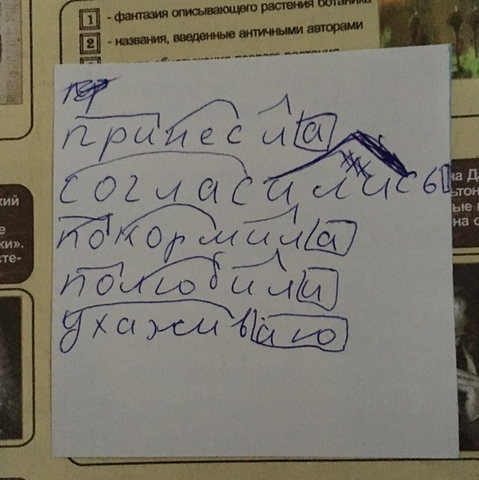 1 - фантазия описывающего растения ботаника
2 - названия, введенные античными авторами
принесла
согласились
покормила
полюбили
ухаживаю